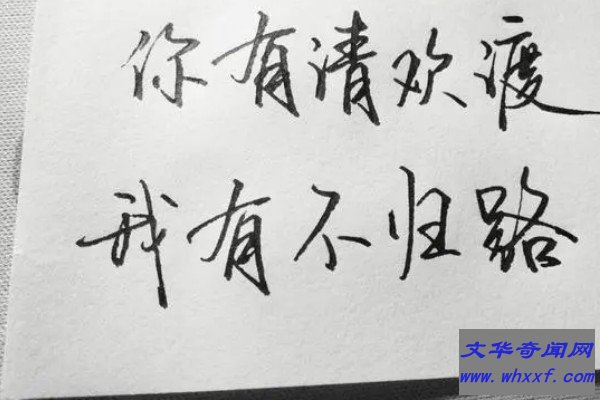 你有清欢渡
我有不归路
文华奇闻网
www.whxxf.com